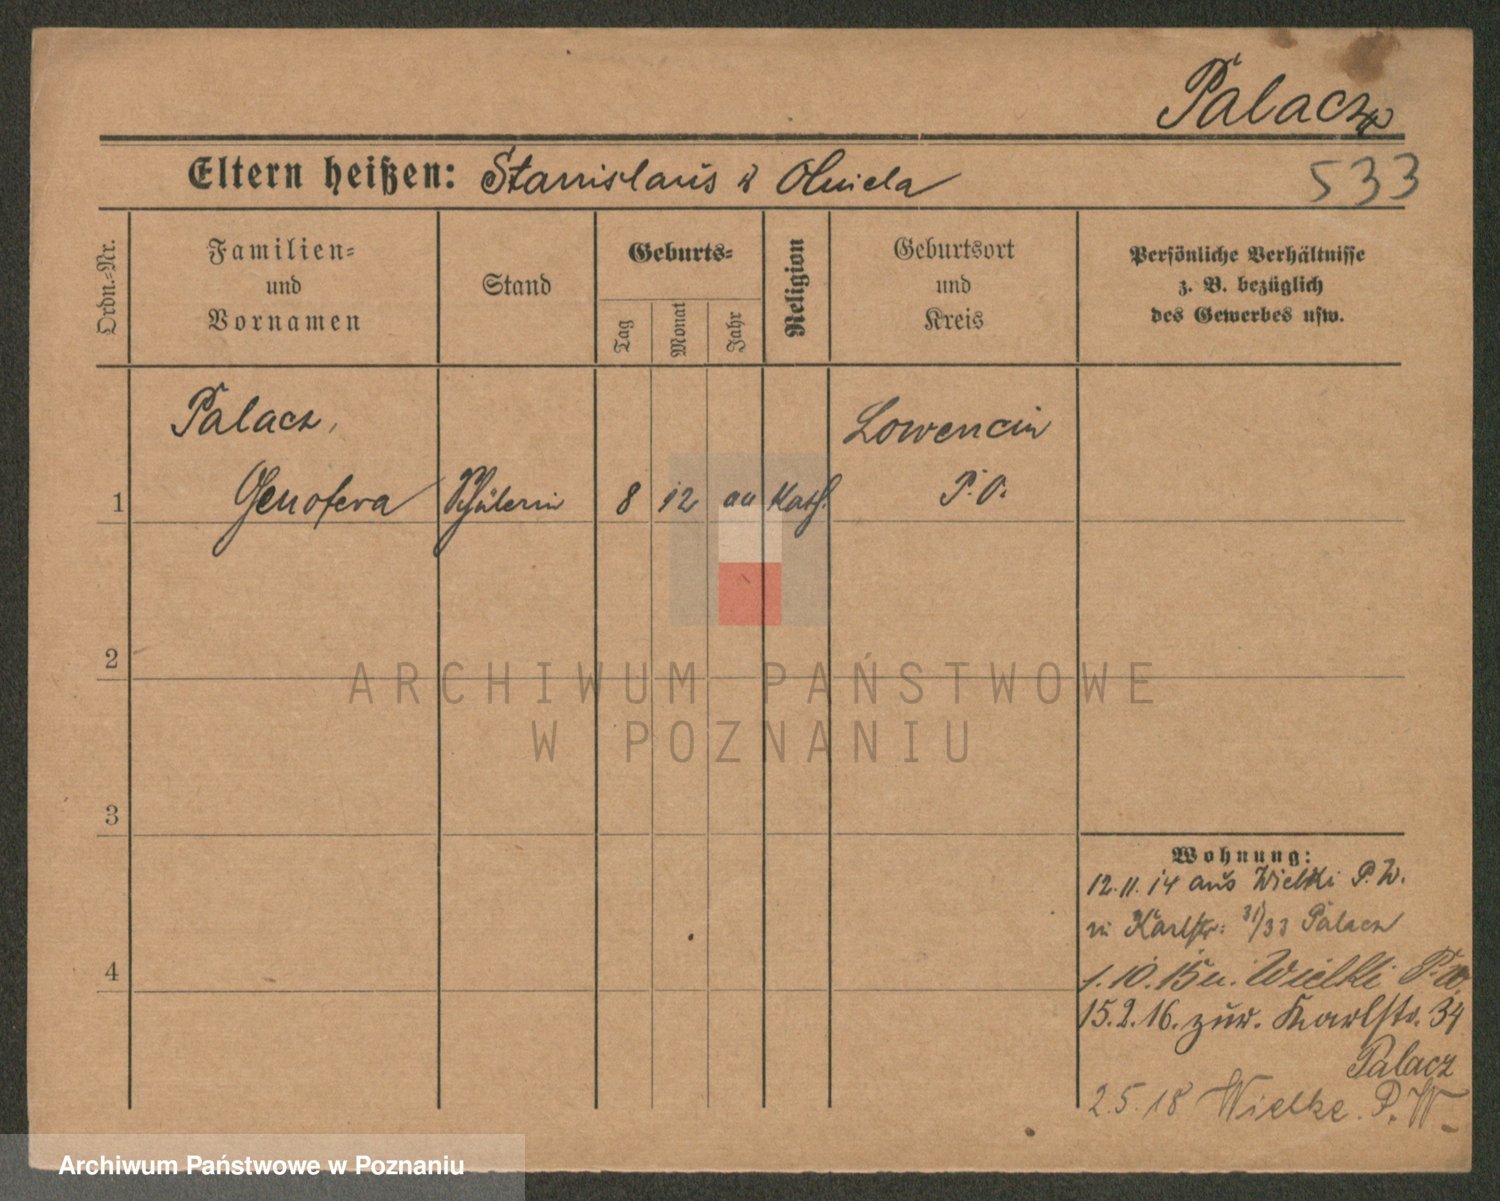 Palacz
Eltern heißen: Stanislaus u
533
Ordn.=Nr.
Familien=
und
Vornamen
Stand
Geburts=
Tag
Monat
Jahr
Religion
Geburtsort
und
Kreis
Persönliche Verhältnisse
z. B. bezüglich
des Gewerbes usw.
Palacz,
Genofeva
1
Schülerin
8
12
Kath.
Lowencin
P. O.
2
3
4
Wohnung:
12.11.14 aus Wielki P. W.
in Karlstr: 31/33 Palacz
1.10.15 n. Wielki P. W.
15.2.16. zur. Karlstr. 34
Palacz
2.5.18 Wielke. P. W.
ARCHIWUM PAŃSTWOWE
W POZNANIU
Archiwum Państwowe w Poznaniu